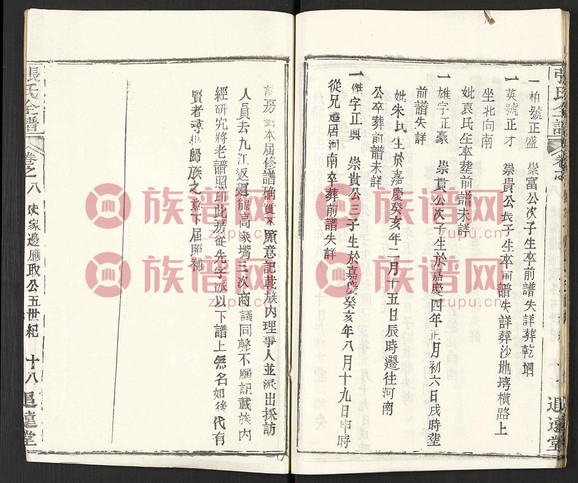 張氏全譜
一柏號正盛 崇富公次子生卒前譜失詳葬乾壋
一英號正才 崇貴公長子生卒前譜失詳葬沙地塆橫路上
坐北向南
一雄字正豪 崇貴公次子生於嘉慶四年正月初六日戌時
妣袁氏生卒葬前譜未詳
前譜失詳
妣朱氏生於嘉慶癸亥年二月十五日辰時遷往河南
公卒葬前譜未詳
一傑字正興 崇貴公三子生於嘉慶癸亥年八月十九日申時
從兄遷居河南卒葬前譜失詳
追遠堂
前房 本届修譜 願意記載族内理事人並派出採訪
人員去九江返迴 高家嘴三次商議同聲不願記載族内
經研究將老譜照印此房從先字派以下譜上無名如後代有
賢者尋根歸族之意下届照補
張氏全譜
卷之八
史家邊應取公五世紀
十八
追遠堂
族谱网
zupu.cn
族谱网
zupu.cn
族谱网
zupu.cn
族谱网
zupu.cn